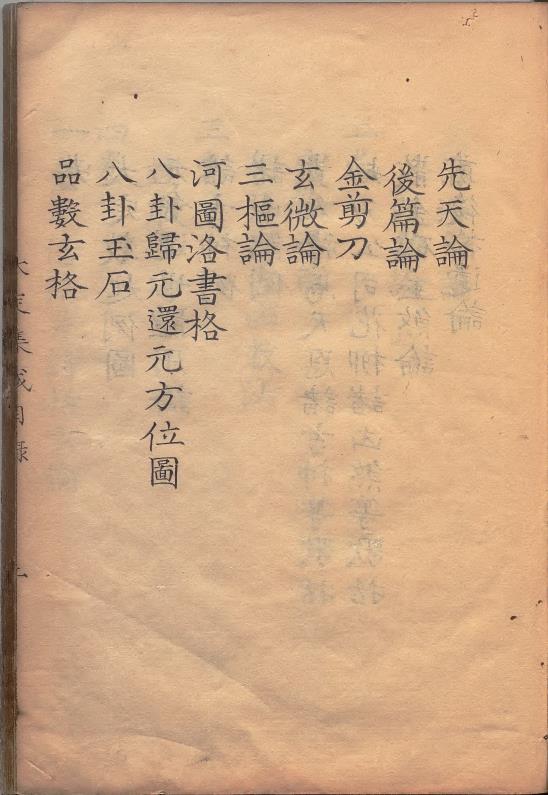 先天論
後篇論
金剪刀
玄微論
三樞論
河圖洛書格
八卦歸元還元方位圖
八卦玉石
品數玄格